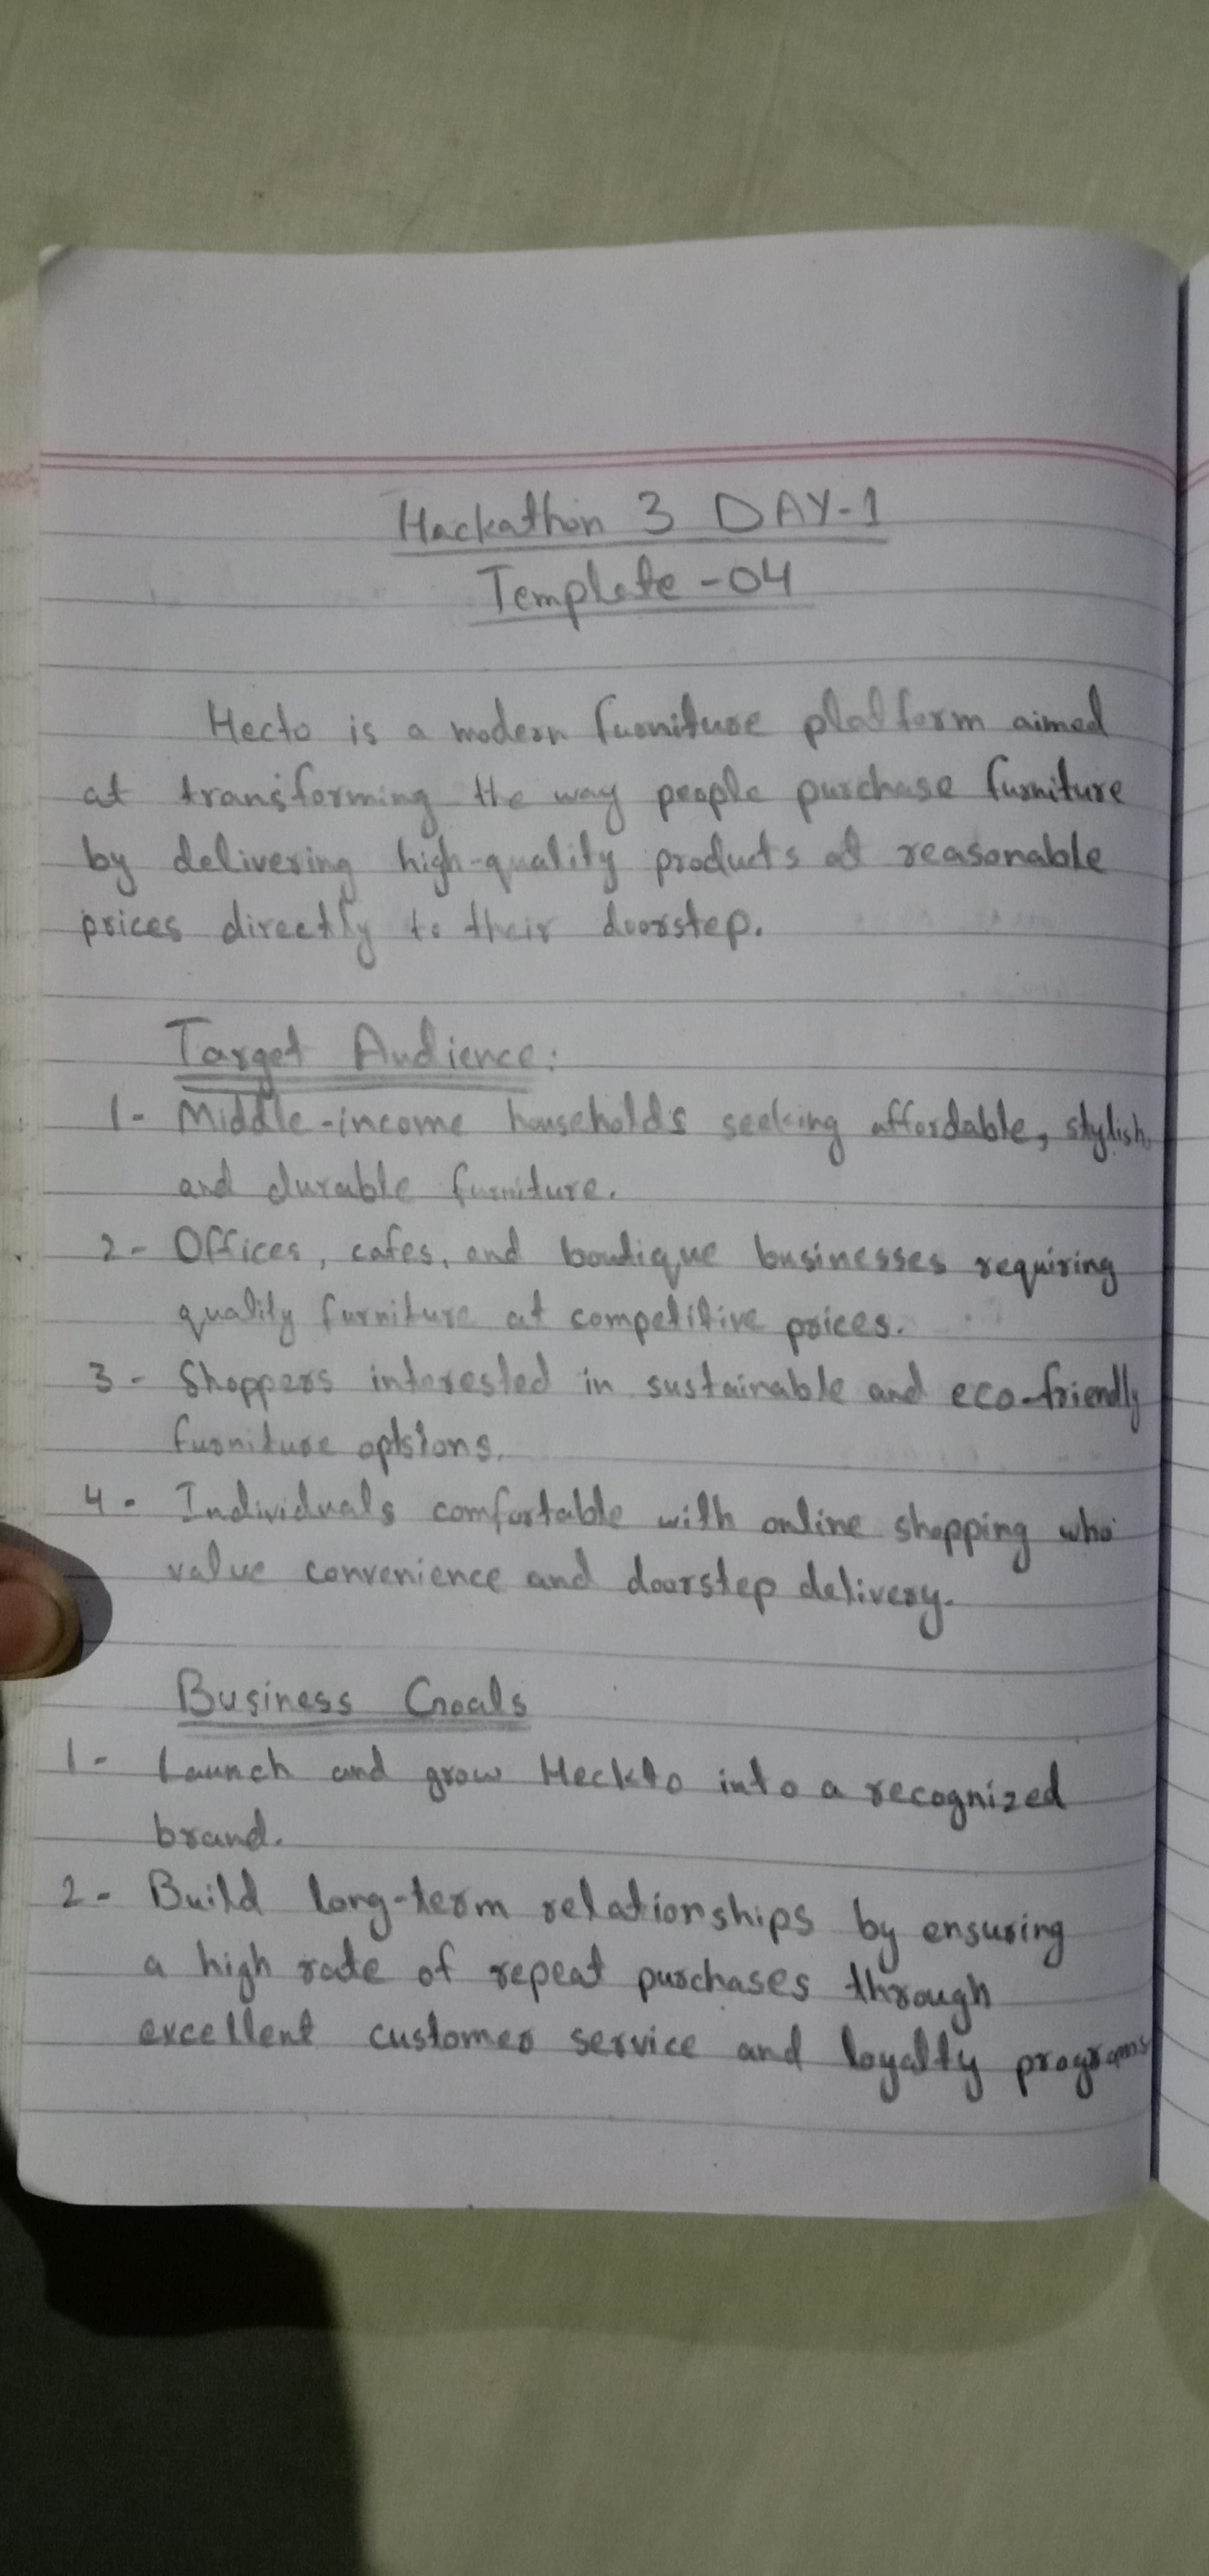 Hackathon 3 DAY-1
Template - 04
Hecto is a modern furniture platform aimed
at transforming the way people purchase furniture
by delivering high-quality products at reasonable
prices directly to their doorstep.
Target Audience:
1- Middle-income households seeking affordable, stylish,
and durable furniture.
2- Offices, cafes, and boutique businesses requiring
quality furniture at competitive prices.
3- Shoppers interested in sustainable and eco-friendly
furniture optsions.
4- Individuals comfortable with online shopping who
value convenience and doorstep delivery.
Business Goals
1- Launch and grow Heckto into a recognized
brand.
2- Build long-term relationships by ensuring
a high rate of repeat purchases through
excellent customer service and loyalty programs